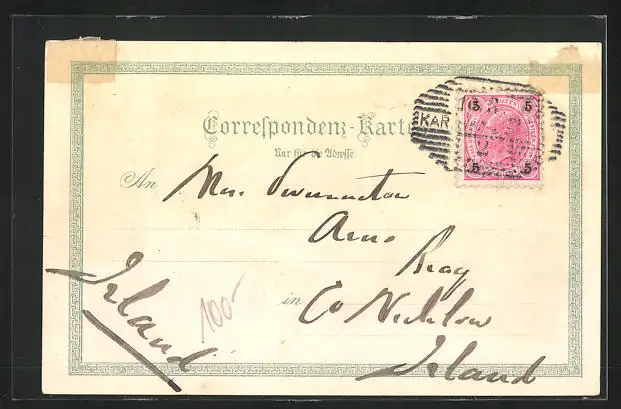 Correspondenz-Karte
Nur für die Adresse.
KAR
5 5
5 5
An Mrs.
Bray
in Co Wicklow
Irland
Irland
100-